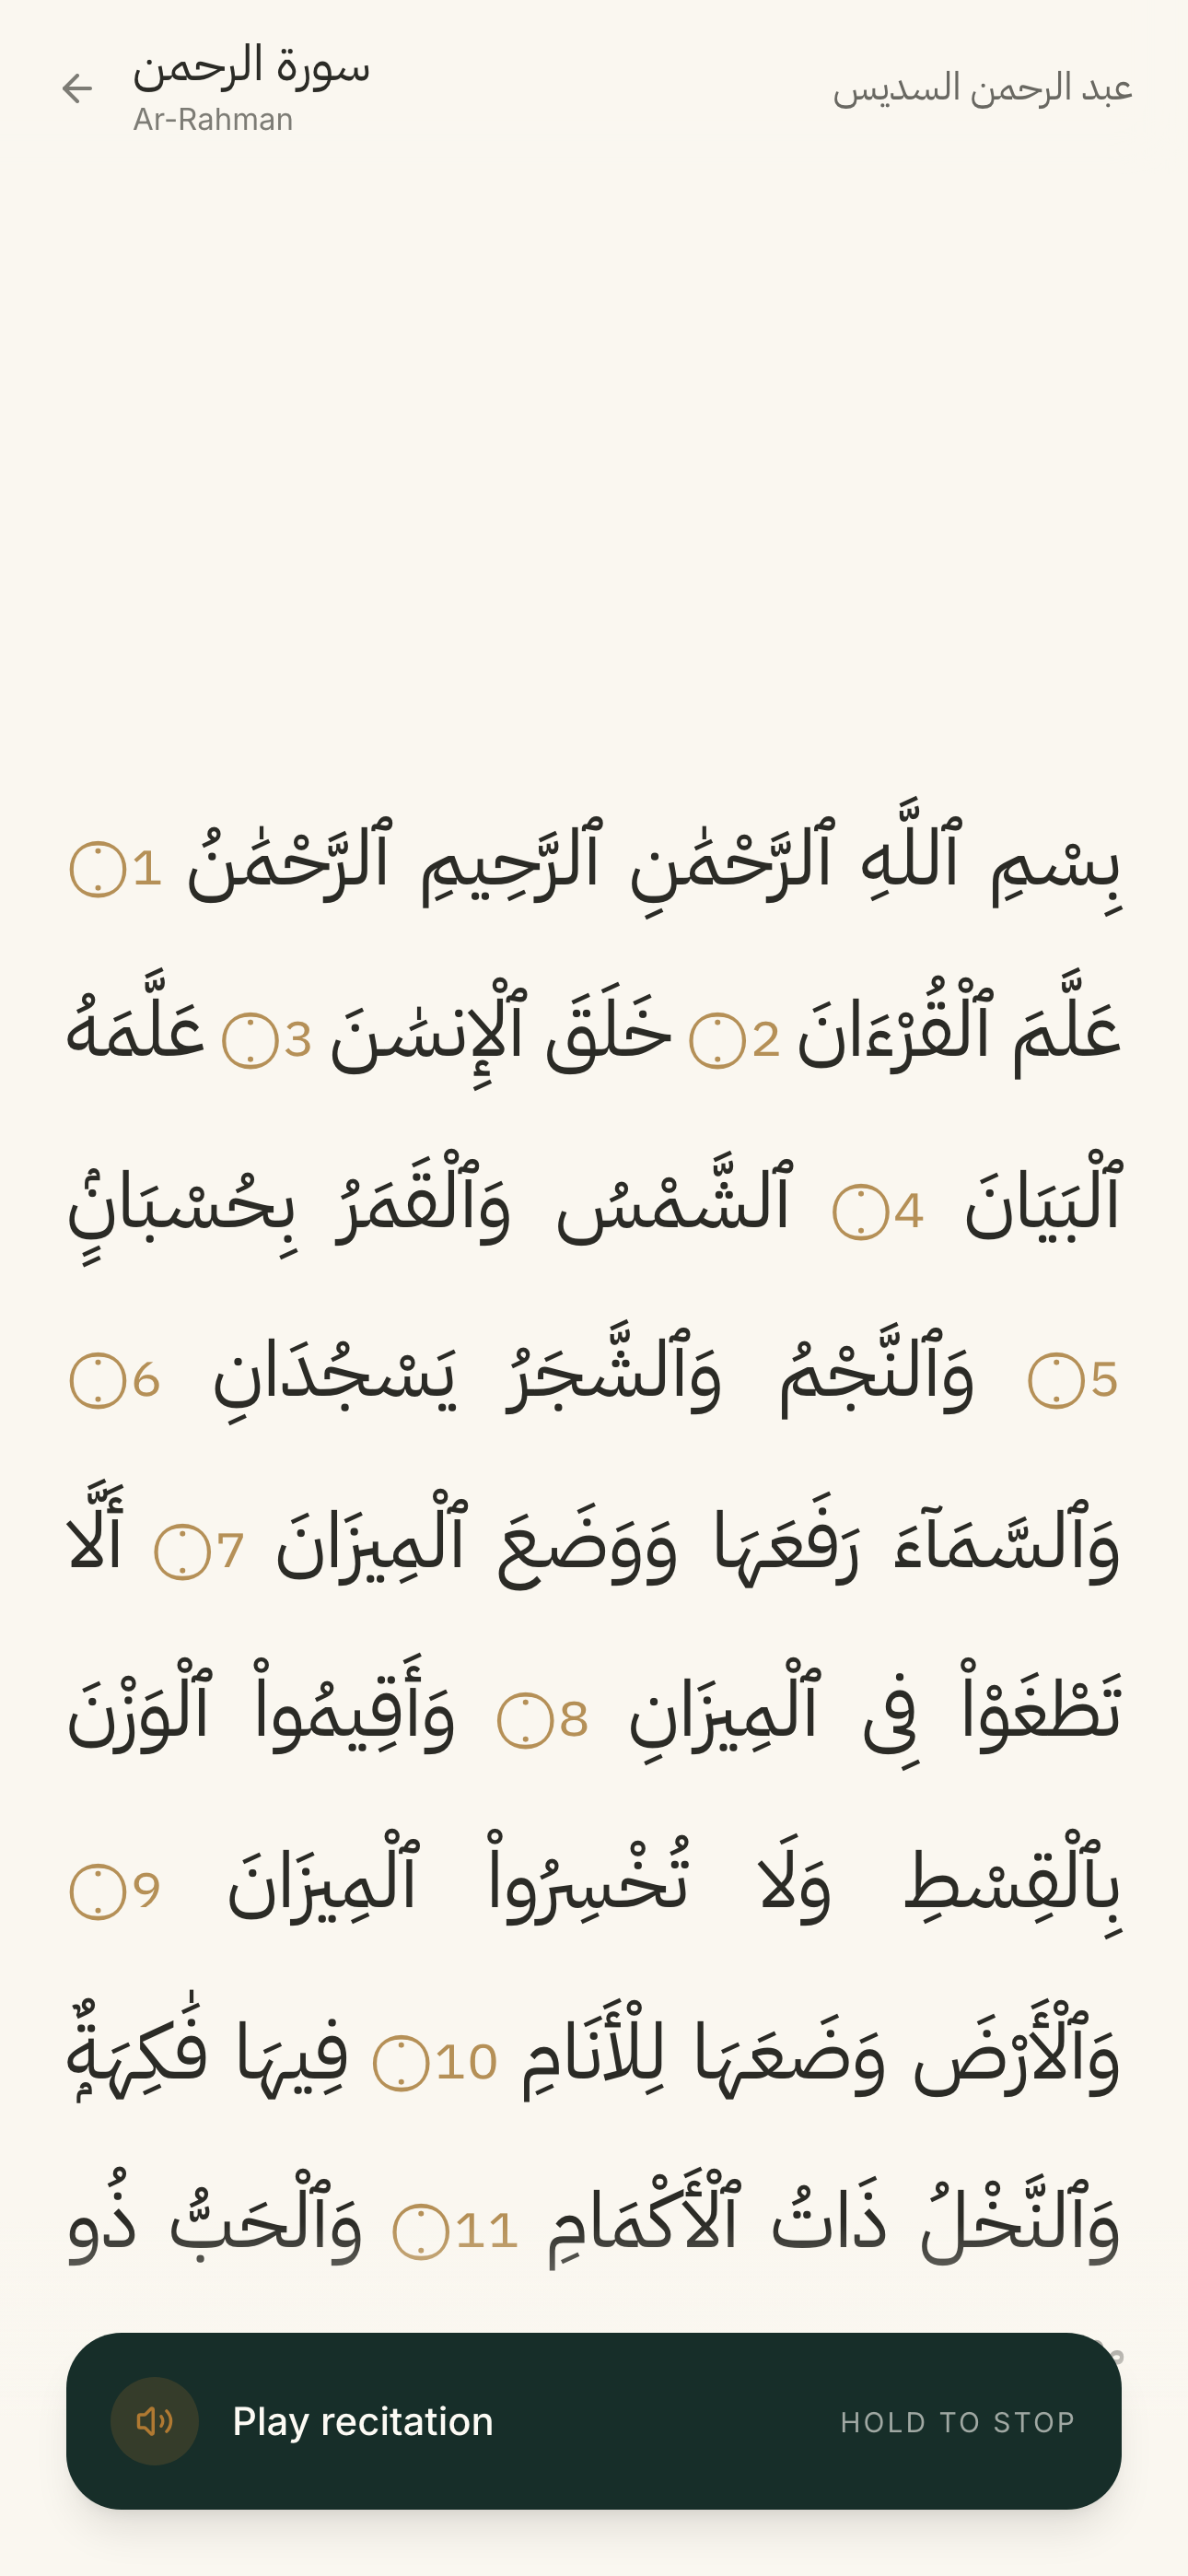 سورة الرحمن
Ar-Rahman
عبد الرحمن السديس
بِسْمِ ٱللَّهِ ٱلرَّحْمَٰنِ ٱلرَّحِيمِ ٱلرَّحْمَٰنُ ۝1
عَلَّمَ ٱلْقُرْءَانَ ۝2 خَلَقَ ٱلْإِنسَٰنَ ۝3 عَلَّمَهُ
ٱلْبَيَانَ ۝4 ٱلشَّمْسُ وَٱلْقَمَرُ بِحُسْبَانٍۢ
۝5 وَٱلنَّجْمُ وَٱلشَّجَرُ يَسْجُدَانِ ۝6
وَٱلسَّمَآءَ رَفَعَهَا وَوَضَعَ ٱلْمِيزَانَ ۝7 أَلَّا
تَطْغَوْا۟ فِى ٱلْمِيزَانِ ۝8 وَأَقِيمُوا۟ ٱلْوَزْنَ
بِٱلْقِسْطِ وَلَا تُخْسِرُوا۟ ٱلْمِيزَانَ ۝9
وَٱلْأَرْضَ وَضَعَهَا لِلْأَنَامِ ۝10 فِيهَا فَٰكِهَةٌۭ
وَٱلنَّخْلُ ذَاتُ ٱلْأَكْمَامِ ۝11 وَٱلْحَبُّ ذُو
Play recitation
HOLD TO STOP